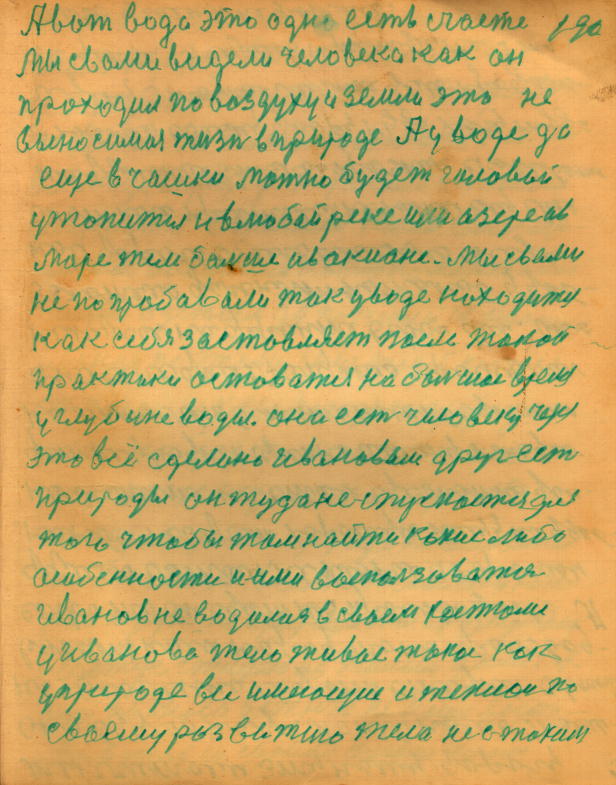 А вот вода это одно есть счастя 190
Мы свами видели человека как он
проходил по воздуху и земли это не
выносимая жизн в природе А у воде да
еще в чашки можно будет головой
утопится и в любой реке или озере ав
море тем больше ав акиане. Мы свами
не попробавали так у воде находится
как себя заставляет после такой
практики оставатся на большое время
у глубине воды. она ест человеку через
это всё сделано Ивановым друг ест
природы он туда не спускается для
того чтобы там найти какие либо
особенности и ими воспользоватся
Иванов не водалия в своем
у Иванова тело живое такое как
у природе все имеющие и теплом по
своему развитию тела не с таким